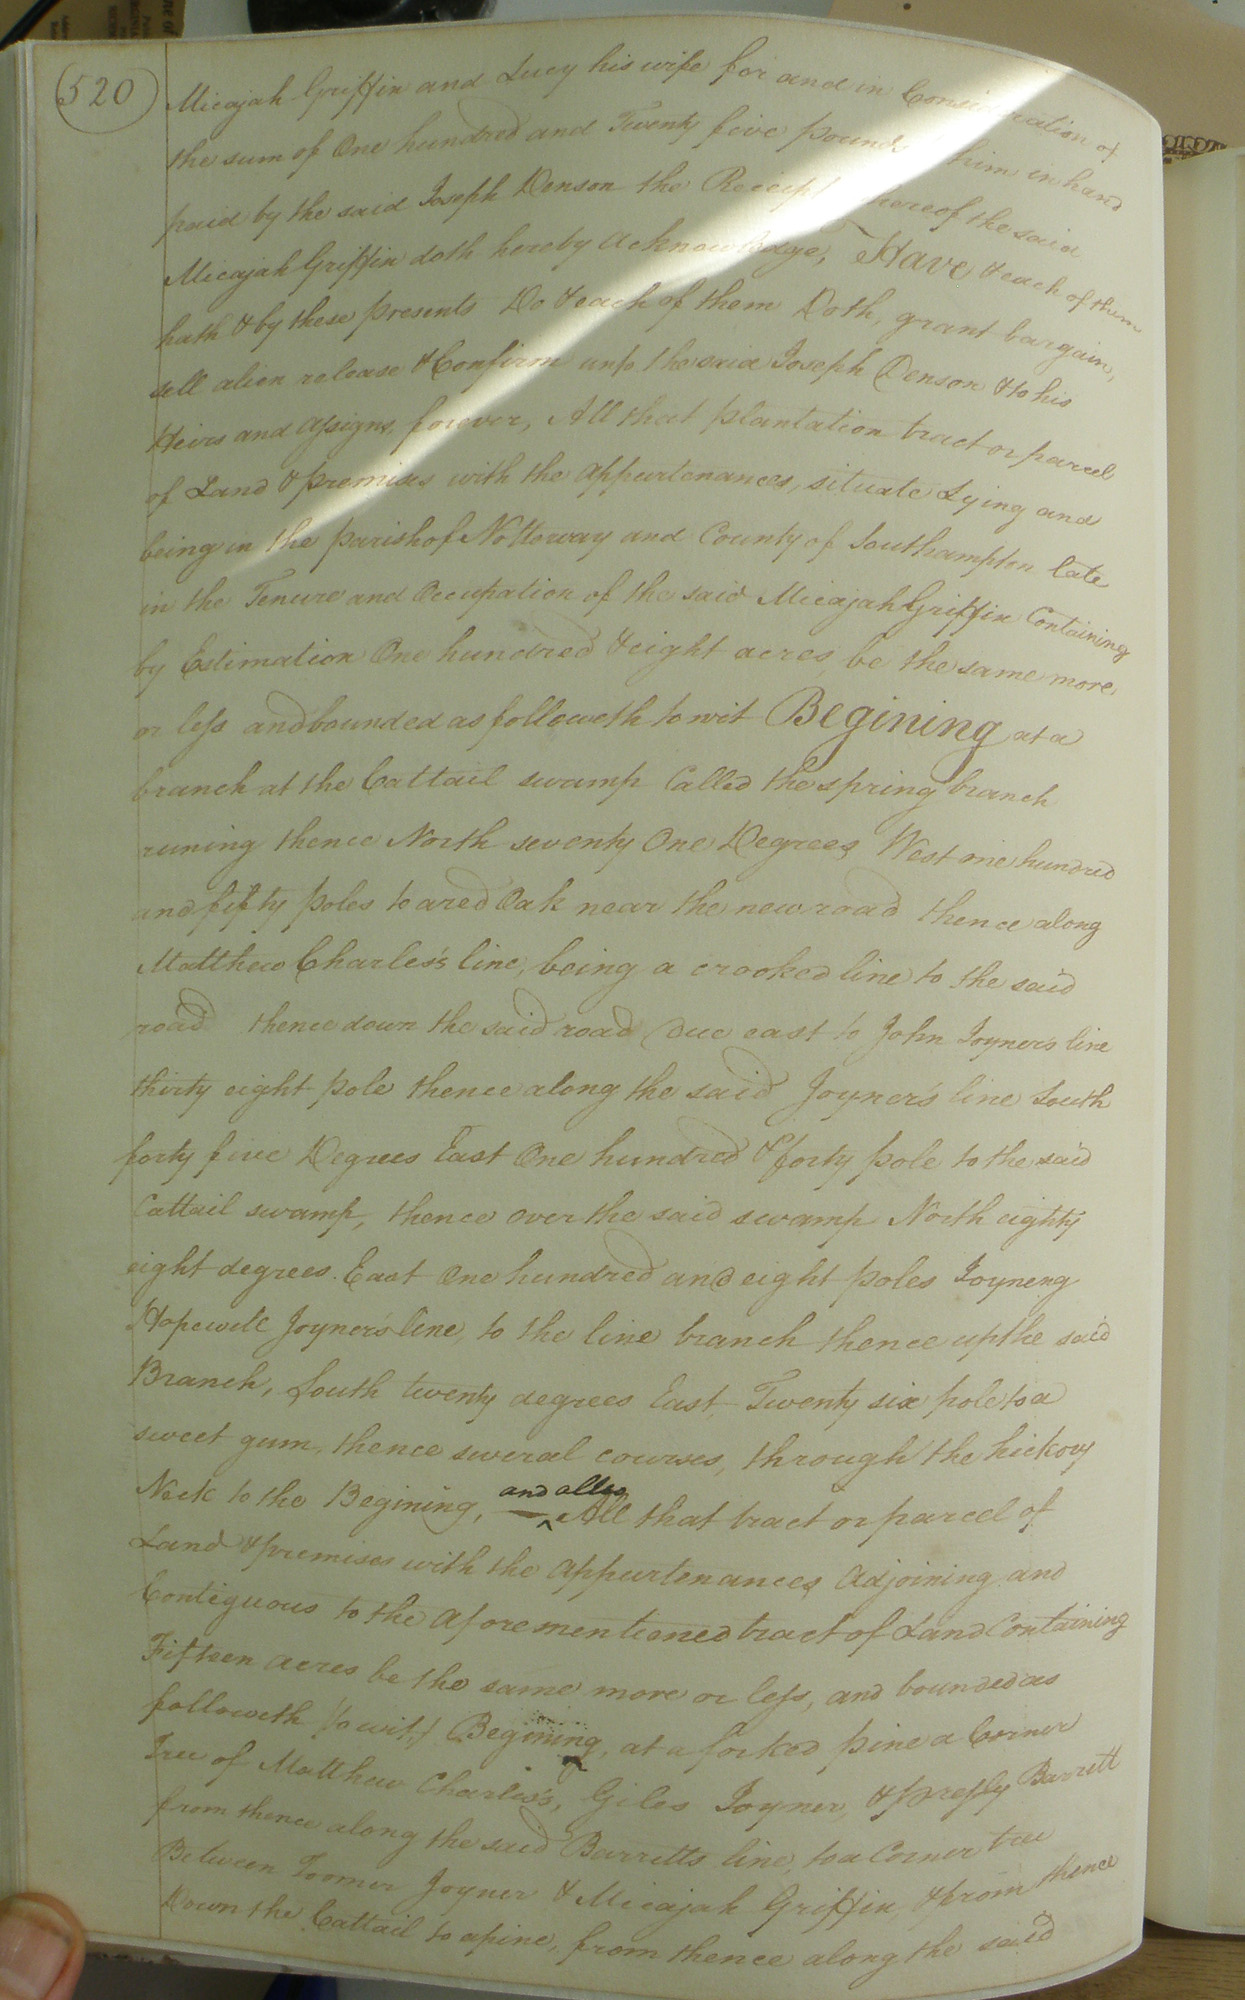 520
Micajah Griffin and Lucy his wife for and in Consideration of
the sum of One hundred and Twenty five pounds him in hand
paid by the said Joseph Denson the Receipt whereof the said
Micajah Griffin doth hereby acknowledge, Have & each of them
hath & by these presents Do & each of them Doth, grant bargain,
sell alien release & Confirm unto the said Joseph Denson & to his
Heirs and assigns, forever, All that plantation tract or parcel
of Land & premises with the appurtenances, situate Lying and
being in the parish of Nottoway and County of Southampton late
in the Tenure and Occupation of the said Micajah Griffin Containing
by Estimation One hundred & eight acres be the same more
or less and bounded as followeth to wit Begining at a
branch at the Cattail swamp Called the spring branch
runing thence North seventy One Degrees West one hundred
and fifty poles to a red Oak near the new road thence along
Matthew Charles's line, being a crooked line to the said
road thence down the said road due east to John Joyner's line
thirty eight pole thence along the said Joyner's line South
forty five Degrees East One hundred & forty pole to the said
Cattail swamp, thence over the said swamp North eighty
eight degrees East One hundred and eight poles Joyneng
Hopewell Joyner's line, to the line branch thence up the said
Branch, South twenty degrees East, Twenty six pole to a
sweet gum, thence several courses, through the hickory
Neck to the Begining, and allso All that tract or parcel of
Land & premises with the appurtenances Adjoining and
Contiguous to the aforementioned tract of Land Containing
Fifteen acres be the same more or less, and bounded as
followeth (to wit,) Begining, at a forked pine a Corner
Tree of Matthew Charles's, Giles Joyner, & Pressly Barrett
from thence along the said Barretts line, to a Corner tree
Between Toomer Joyner & Micajah Griffin, & from thence
Down the Cattail to a pine, from thence along the said